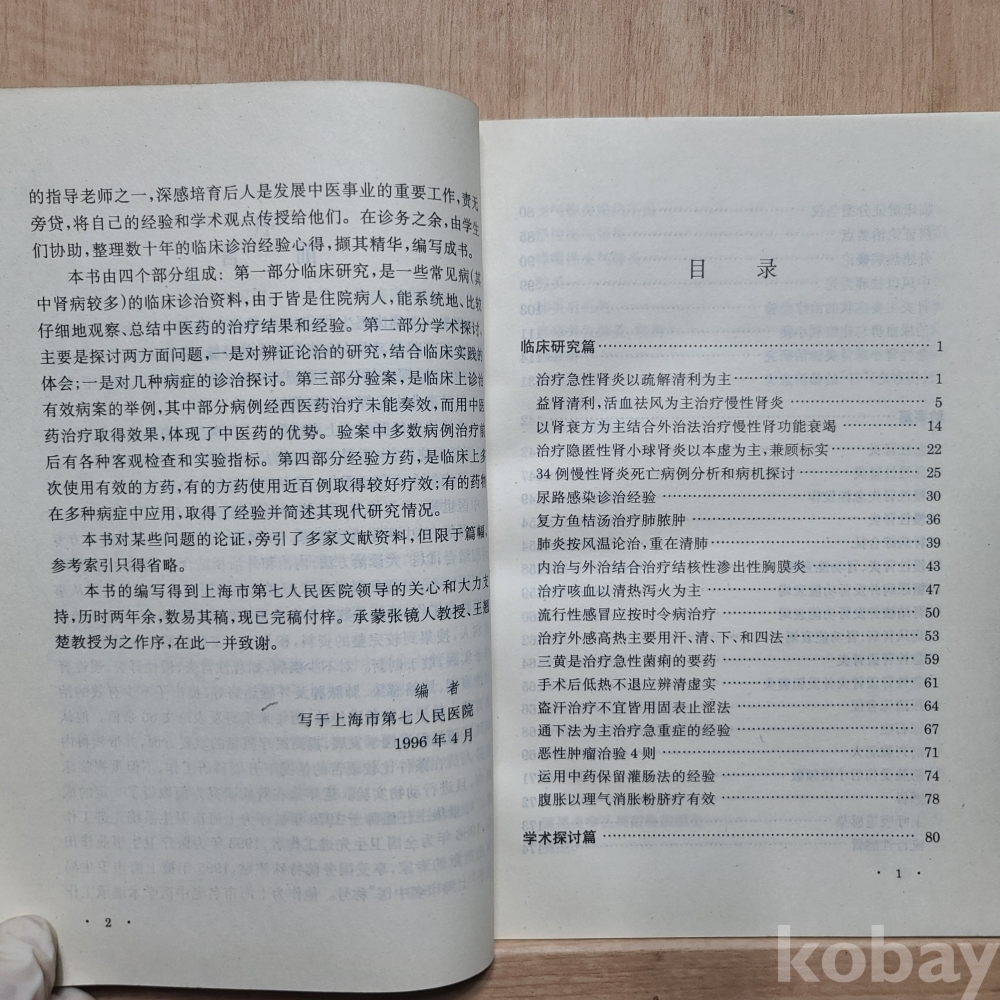 的指导老师之一,深感培育后人是发展中医事业的重要工作,责无
旁贷,将自己的经验和学术观点传授给他们。在诊务之余,由学生
们协助,整理数十年的临床诊治经验心得,撷其精华,编写成书。
本书由四个部分组成:第一部分临床研究,是一些常见病(其
中肾病较多)的临床诊治资料,由于皆是住院病人,能系统地、比较
仔细地观察、总结中医药的治疗结果和经验。第二部分学术探讨,
主要是探讨两方面问题,一是对辨证论治的研究,结合临床实践的
体会;一是对几种病症的诊治探讨。第三部分验案,是临床上诊治
有效病案的举例,其中部分病例经西医药治疗未能奏效,而用中医
药治疗取得效果,体现了中医药的优势。验案中多数病例治疗前
后有各种客观检查和实验指标。第四部分经验方药,是临床上多
次使用有效的方药,有的方药使用近百例取得较好疗效;有的药物
在多种病症中应用,取得了经验并简述其现代研究情况。
本书对某些问题的论证,旁引了多家文献资料,但限于篇幅,
参考索引只得省略。
本书的编写得到上海市第七人民医院领导的关心和大力支
持,历时两年余,数易其稿,现已完稿付梓。承蒙张镜人教授、王翘
楚教授为之作序,在此一并致谢。
编 者
写于上海市第七人民医院
1996年4月
· 2 ·
目 录
临床研究篇 1
治疗急性肾炎以疏解清利为主 1
益肾清利,活血祛风为主治疗慢性肾炎 5
以肾衰方为主结合外治法治疗慢性肾功能衰竭 14
治疗隐匿性肾小球肾炎以本虚为主,兼顾标实 22
34例慢性肾炎死亡病例分析和病机探讨 25
尿路感染诊治经验 30
复方鱼桔汤治疗肺脓肿 36
肺炎按风温论治,重在清肺 39
内治与外治结合治疗结核性渗出性胸膜炎 43
治疗咳血以清热泻火为主 47
流行性感冒应按时令病治疗 50
治疗外感高热主要用汗、清、下、和四法 53
三黄是治疗急性菌痢的要药 59
手术后低热不退应辨清虚实 61
盗汗治疗不宜皆用固表止涩法 64
通下法为主治疗急重症的经验 67
恶性肿瘤治验4则 71
运用中药保留灌肠法的经验 74
腹胀以理气消胀粉脐疗有效 78
学术探讨篇 80
· 1 ·
kobay